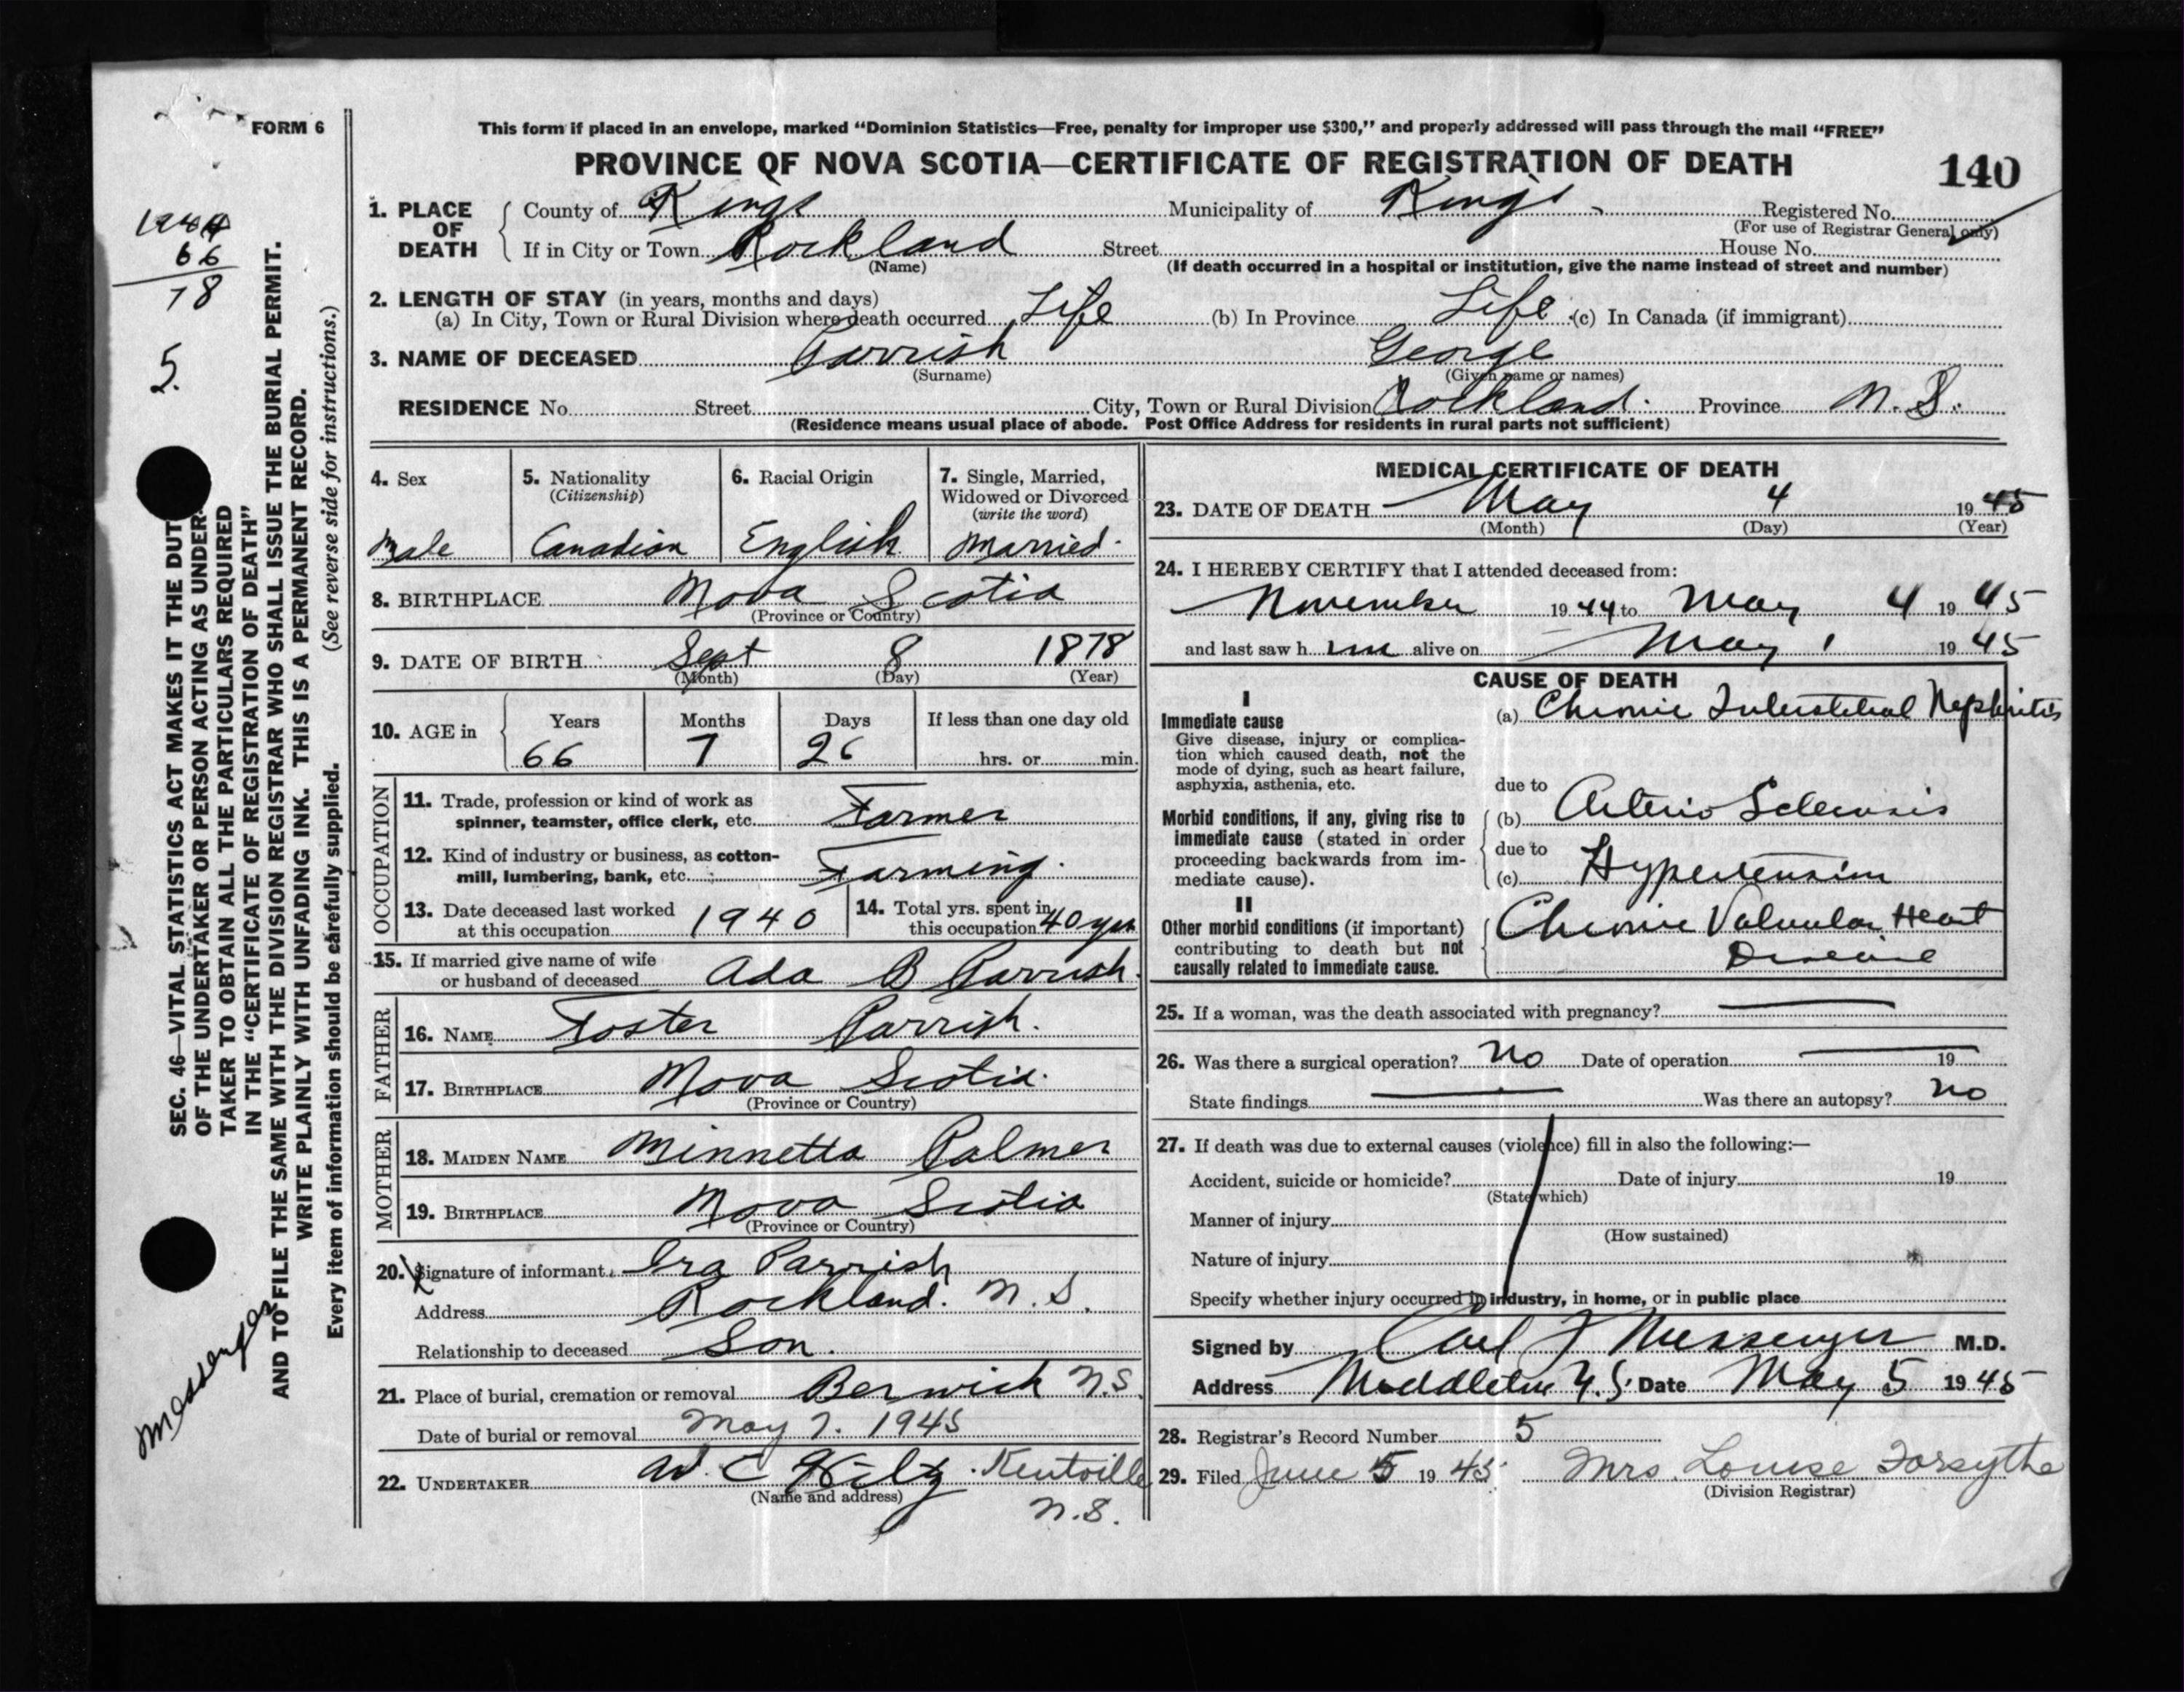 FORM 6
This form if placed in an envelope, marked “Dominion Statistics—Free, penalty for improper use $300,” and properly addressed will pass through the mail “FREE”
PROVINCE OF NOVA SCOTIA—CERTIFICATE OF REGISTRATION OF DEATH
140
1. PLACE OF DEATH
County of Kings Municipality of Kings Registered No.
(For use of Registrar General only)
If in City or Town Rockland Street House No.
(Name) (If death occurred in a hospital or institution, give the name instead of street and number)
2. LENGTH OF STAY (in years, months and days)
(a) In City, Town or Rural Division where death occurred Life (b) In Province Life (c) In Canada (if immigrant)
3. NAME OF DECEASED Parrish George
(Surname) (Given name or names)
RESIDENCE No. Street City, Town or Rural Division Rockland. Province N. S.
(Residence means usual place of abode. Post Office Address for residents in rural parts not sufficient)
4. Sex
Male
5. Nationality
(Citizenship)
Canadian
6. Racial Origin
English
7. Single, Married,
Widowed or Divorced
(write the word)
Married.
8. BIRTHPLACE Nova Scotia
(Province or Country)
9. DATE OF BIRTH Sept 8 1878
(Month) (Day) (Year)
10. AGE in
Years Months Days If less than one day old
66 7 26 hrs. or min.
OCCUPATION
11. Trade, profession or kind of work as
spinner, teamster, office clerk, etc. Farmer
12. Kind of industry or business, as cotton-
mill, lumbering, bank, etc. Farming.
13. Date deceased last worked
at this occupation 1940
14. Total yrs. spent in
this occupation 40 yrs
15. If married give name of wife
or husband of deceased Ada B Parrish.
FATHER
16. NAME Foster Parrish.
17. BIRTHPLACE Nova Scotia.
(Province or Country)
MOTHER
18. MAIDEN NAME Minnetta Palmer
19. BIRTHPLACE Nova Scotia
(Province or Country)
20. Signature of informant Ira Parrish
Address Rockland. N. S.
Relationship to deceased Son.
21. Place of burial, cremation or removal Berwick N.S.
Date of burial or removal May 7. 1945
22. UNDERTAKER Kentville
(Name and address) N.S.
MEDICAL CERTIFICATE OF DEATH
23. DATE OF DEATH May 4 1945
(Month) (Day) (Year)
24. I HEREBY CERTIFY that I attended deceased from:
November 1944 to May 4 1945
and last saw him alive on May 1 1945
CAUSE OF DEATH
I
Immediate cause
Give disease, injury or complica-
tion which caused death, not the
mode of dying, such as heart failure,
asphyxia, asthenia, etc.
(a) Chronic Interstitial Nephritis
due to
Morbid conditions, if any, giving rise to
immediate cause (stated in order
proceeding backwards from im-
mediate cause).
(b) Arterio Sclerosis
due to
(c) Hypertension
II
Other morbid conditions (if important)
contributing to death but not
causally related to immediate cause.
Chronic Valvular Heart
Disease
25. If a woman, was the death associated with pregnancy?
26. Was there a surgical operation? No Date of operation 19
State findings Was there an autopsy? No
27. If death was due to external causes (violence) fill in also the following:—
Accident, suicide or homicide? Date of injury 19
(State which)
Manner of injury
(How sustained)
Nature of injury
Specify whether injury occurred in industry, in home, or in public place
Signed by Carl F Messenger M.D.
Address Middleton N.S. Date May 5 1945
28. Registrar's Record Number 5
29. Filed June 5 1945 Mrs. Louise Forsythe
(Division Registrar)
66
78
5.
SEC. 46—VITAL STATISTICS ACT MAKES IT THE DUTY
OF THE UNDERTAKER OR PERSON ACTING AS UNDER-
TAKER TO OBTAIN ALL THE PARTICULARS REQUIRED
IN THE “CERTIFICATE OF REGISTRATION OF DEATH”
AND TO FILE THE SAME WITH THE DIVISION REGISTRAR WHO SHALL ISSUE THE BURIAL PERMIT.
WRITE PLAINLY WITH UNFADING INK. THIS IS A PERMANENT RECORD.
Every item of information should be carefully supplied. (See reverse side for instructions.)
Messenger